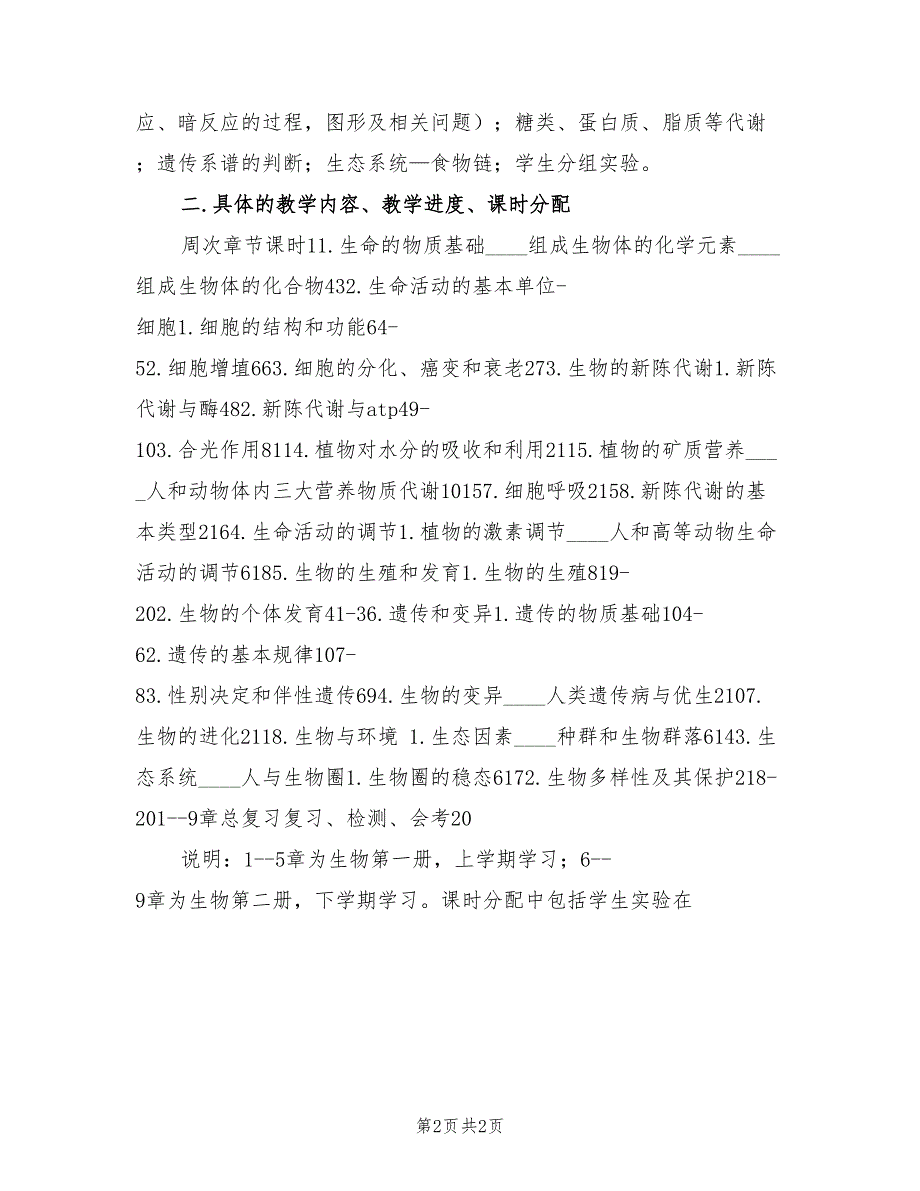 应、暗反应的过程，图形及相关问题）；糖类、蛋白质、脂质等代谢
；遗传系谱的判断；生态系统—食物链；学生分组实验。
二.具体的教学内容、教学进度、课时分配
周次章节课时11.生命的物质基础____组成生物体的化学元素____
组成生物体的化合物432.生命活动的基本单位-
细胞1.细胞的结构和功能64-
52.细胞增埴663.细胞的分化、癌变和衰老273.生物的新陈代谢1.新陈
代谢与酶482.新陈代谢与atp49-
103.合光作用8114.植物对水分的吸收和利用2115.植物的矿质营养___
_人和动物体内三大营养物质代谢10157.细胞呼吸2158.新陈代谢的基
本类型2164.生命活动的调节1.植物的激素调节____人和高等动物生命
活动的调节6185.生物的生殖和发育1.生物的生殖819-
202.生物的个体发育41-36.遗传和变异1.遗传的物质基础104-
62.遗传的基本规律107-
83.性别决定和伴性遗传694.生物的变异____人类遗传病与优生2107.
生物的进化2118.生物与环境 1.生态因素____种群和生物群落6143.生
态系统____人与生物圈1.生物圈的稳态6172.生物多样性及其保护218-
201--9章总复习复习、检测、会考20
说明：1--5章为生物第一册，上学期学习；6--
9章为生物第二册，下学期学习。课时分配中包括学生实验在
第2页 共2页